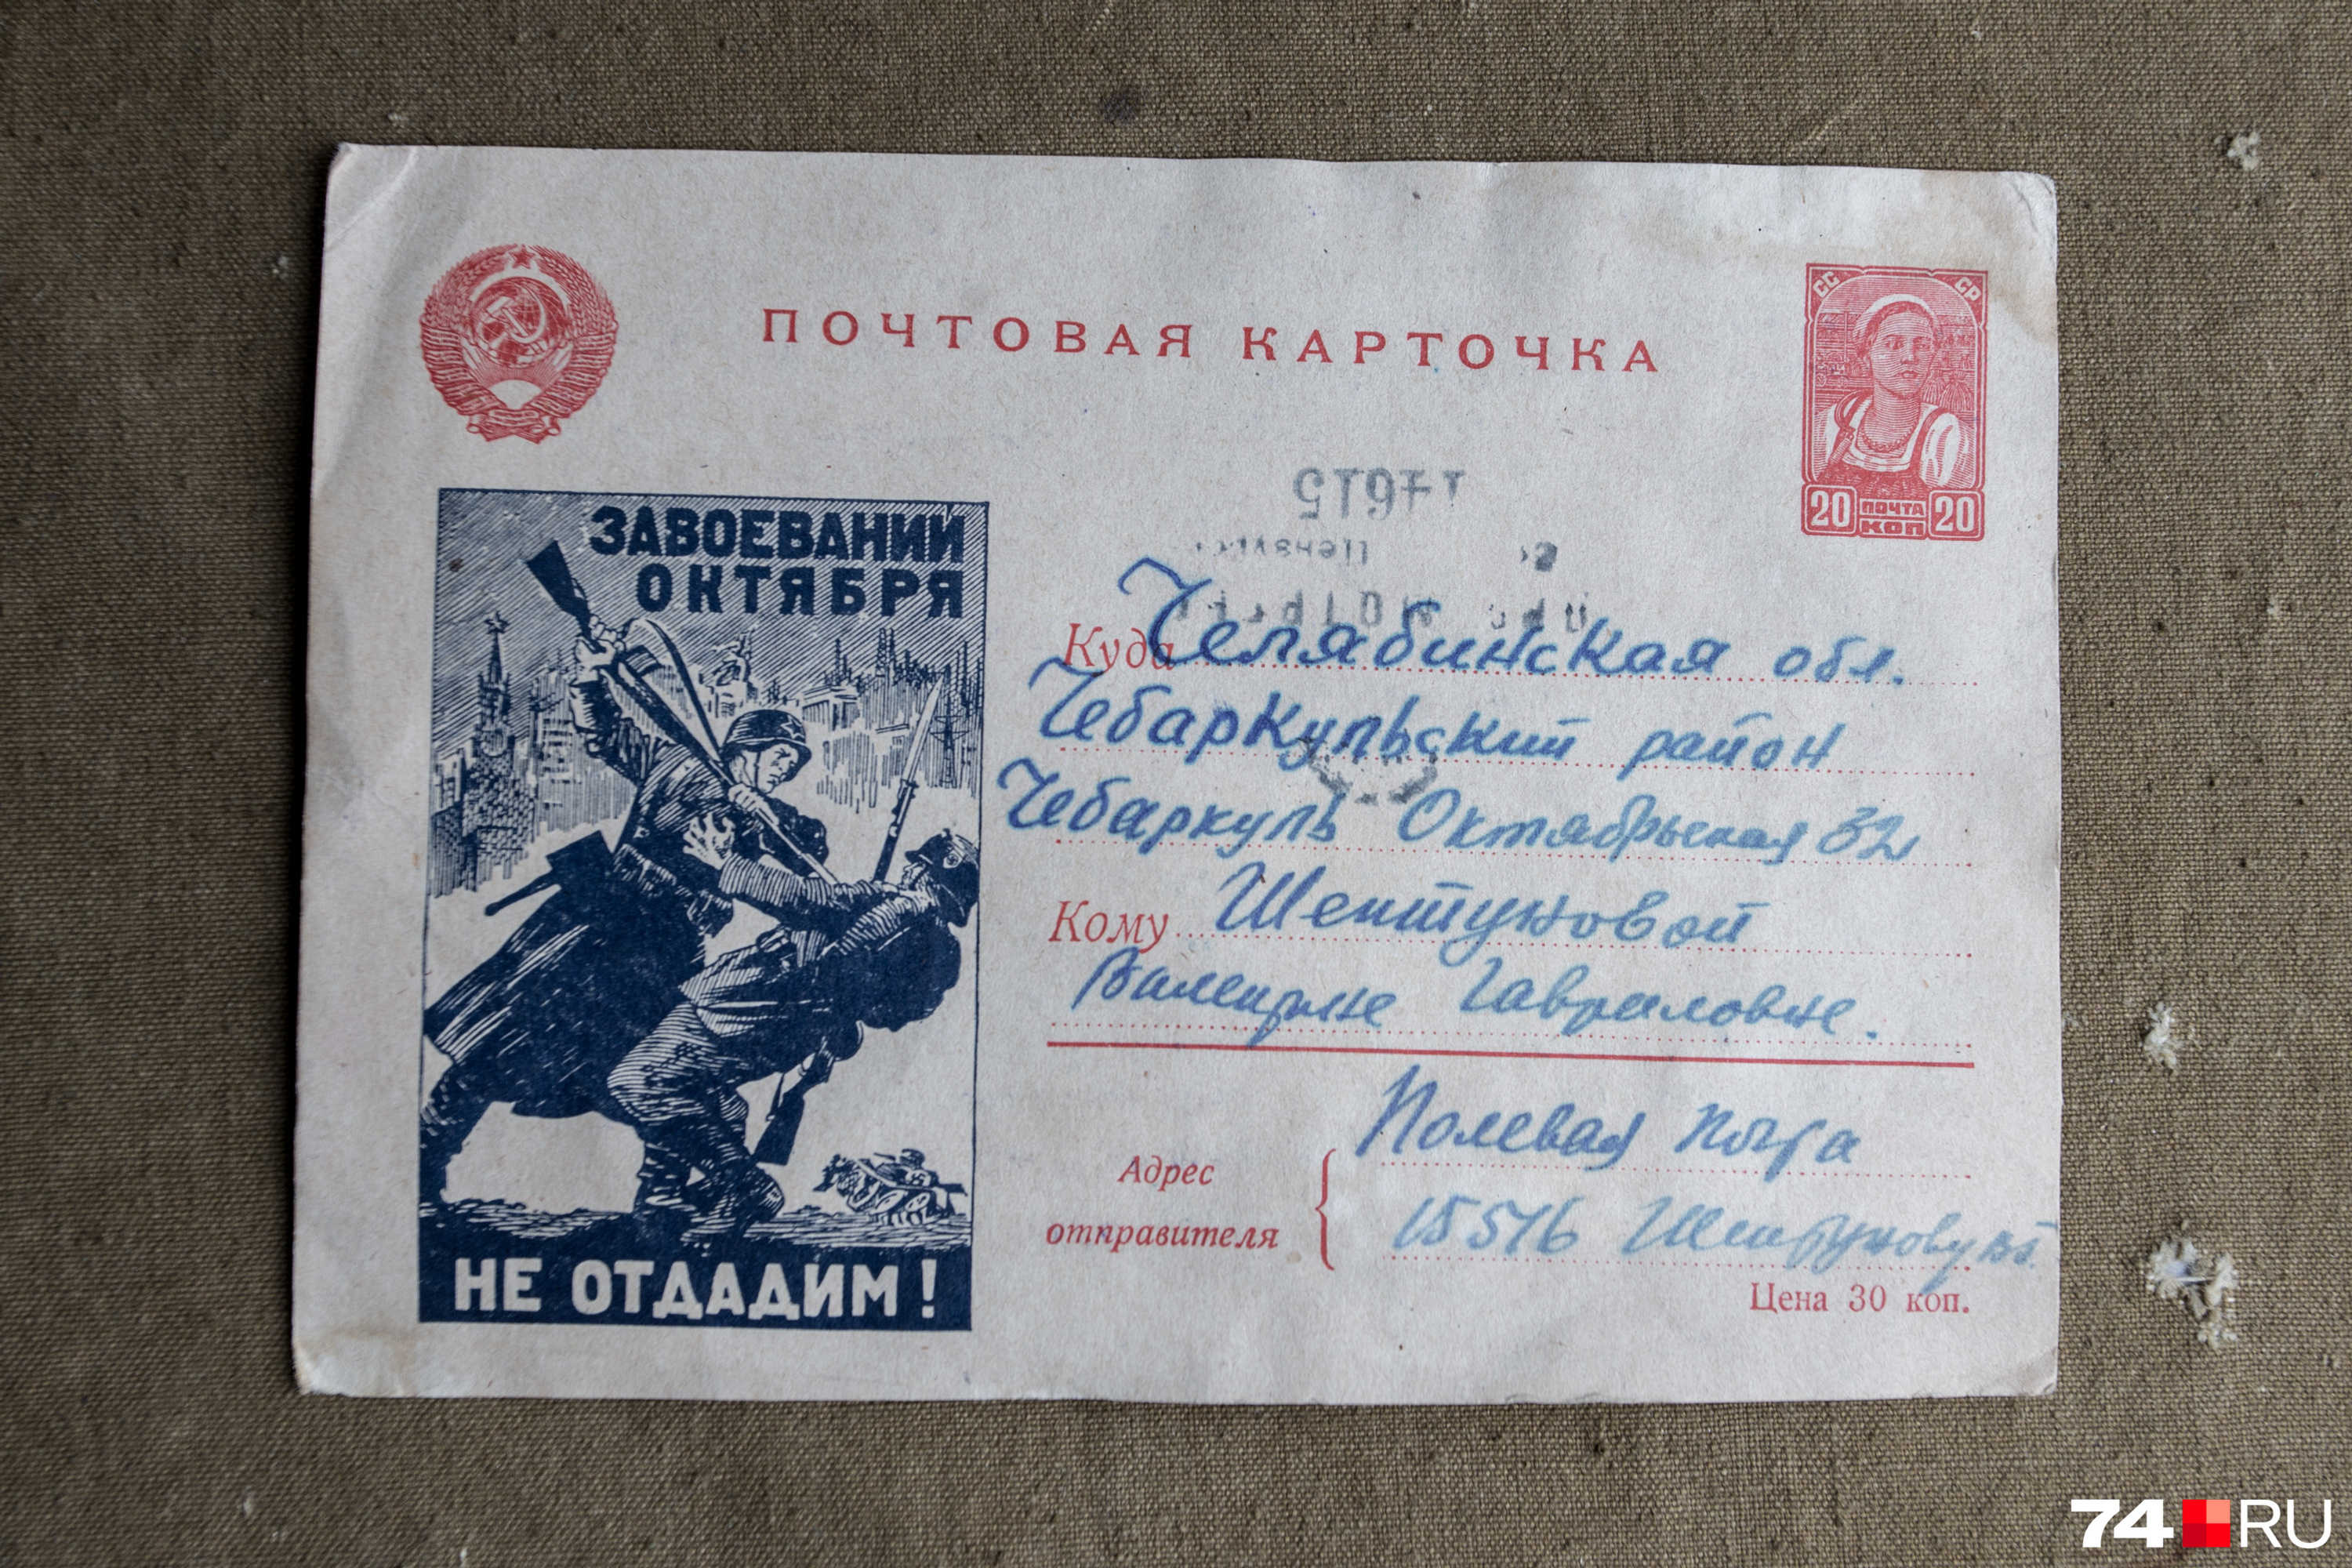 ПОЧТОВАЯ КАРТОЧКА
СС СР
20 ПОЧТА КОП 20
ЗАВОЕВАНИЙ
ОКТЯБРЯ
НЕ ОТДАДИМ!
17615
Куда Челябинская обл.
Чебаркульский район
Чебаркуль Октябрьская 32
Кому Шентуновой
Валентине Гавриловне.
Адрес отправителя
Полевая почта
15516
Цена 30 коп.
74 RU